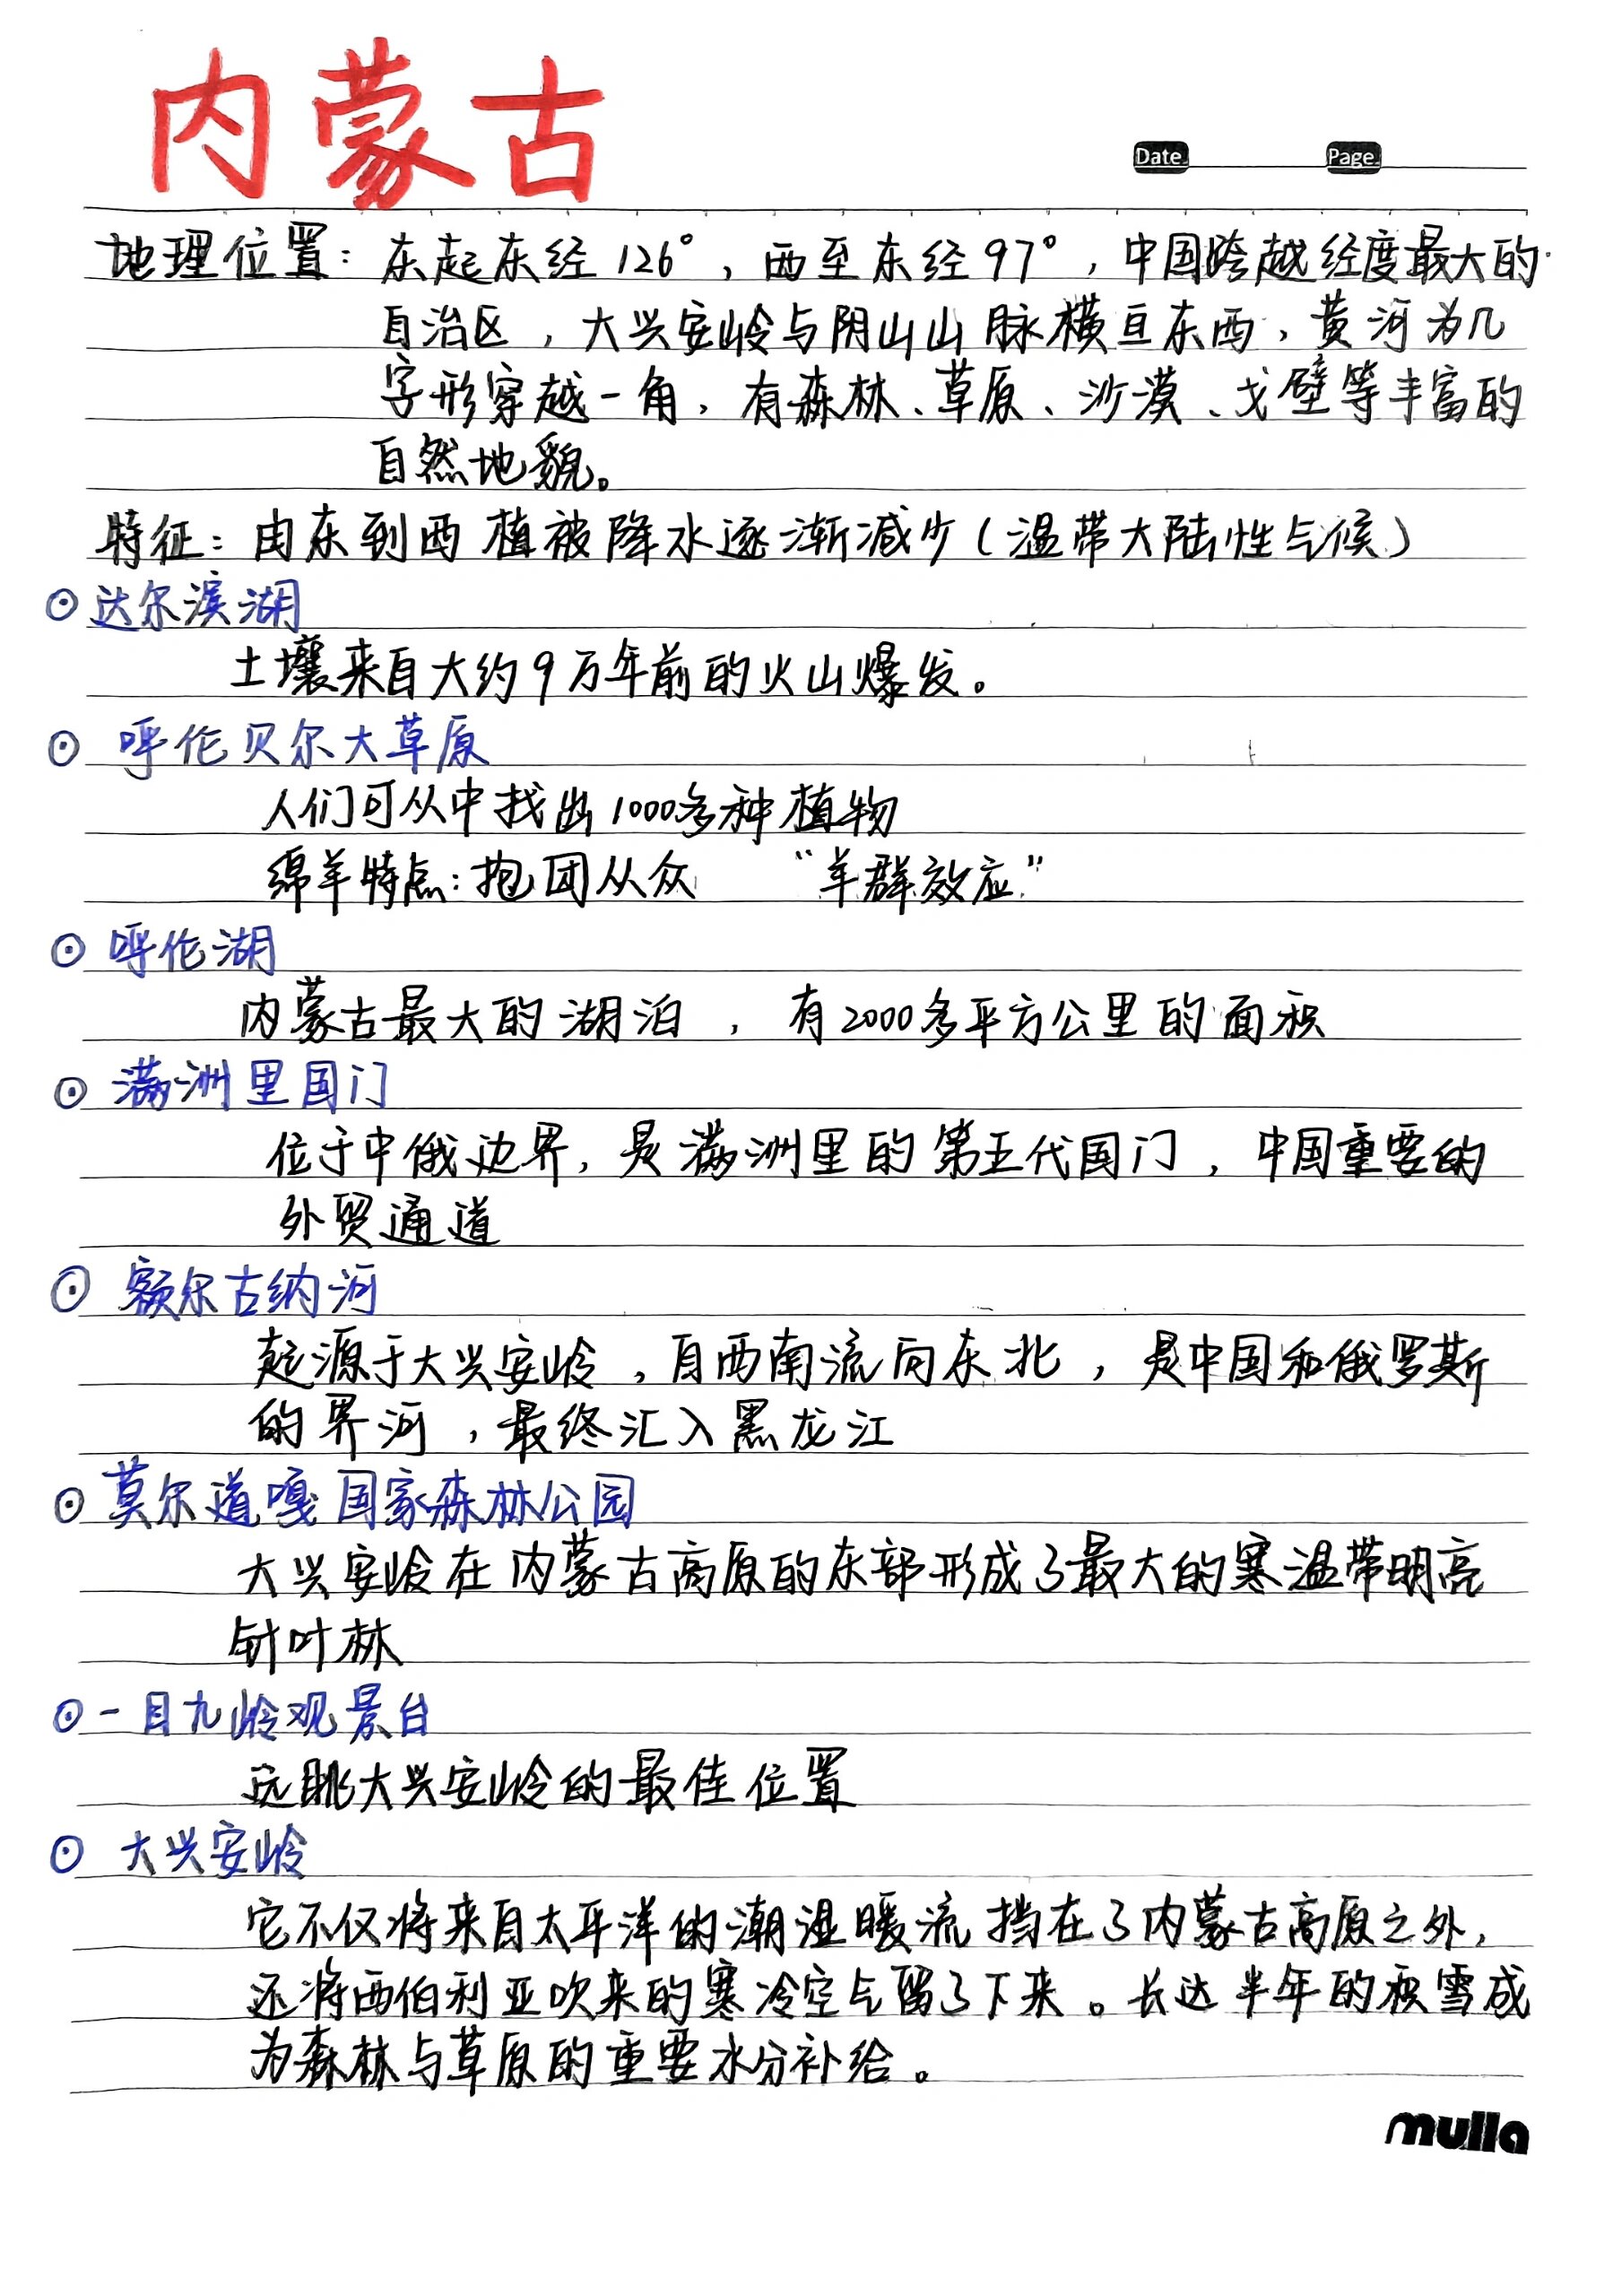 内蒙古
Date. Page.
地理位置：东起东经126°，西至东经97°，中国跨越经度最大的
自治区，大兴安岭与阴山山脉横亘东西，黄河为几
字形穿越一角，有森林、草原、沙漠、戈壁等丰富的
自然地貌。
特征：由东到西植被降水逐渐减少（温带大陆性气候）
⊙达尔滨湖
土壤来自大约9万年前的火山爆发。
⊙呼伦贝尔大草原
人们可从中找出1000多种植物
绵羊特点：抱团从众 “羊群效应”
⊙呼伦湖
内蒙古最大的湖泊，有2000多平方公里的面积
⊙满洲里国门
位于中俄边界，是满洲里的第五代国门，中国重要的
外贸通道
⊙额尔古纳河
起源于大兴安岭，自西南流向东北，是中国和俄罗斯
的界河，最终汇入黑龙江
⊙莫尔道嘎国家森林公园
大兴安岭在内蒙古高原的东部形成了最大的寒温带明亮
针叶林
⊙一目九岭观景台
远眺大兴安岭的最佳位置
⊙大兴安岭
它不仅将来自太平洋的潮湿暖流挡在了内蒙古高原之外，
还将西伯利亚吹来的寒冷空气留了下来。长达半年的积雪成
为森林与草原的重要水分补给。
mulla